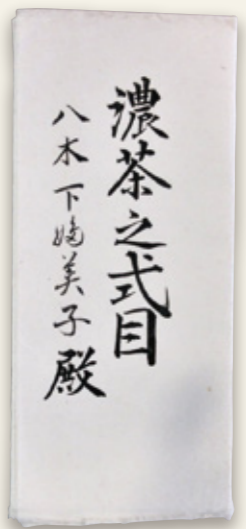 濃茶之式目
八木下嫡美子殿